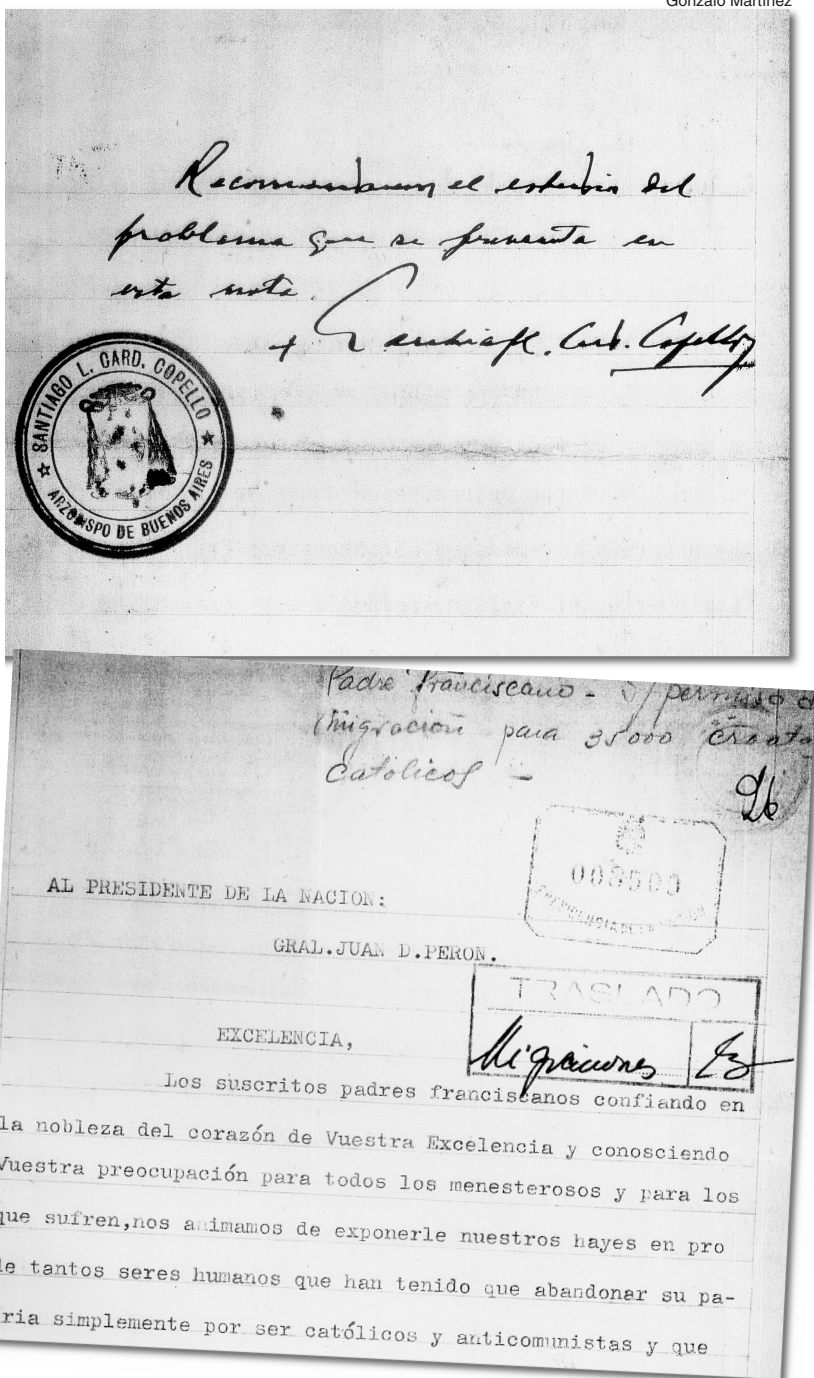 Gonzalo Martínez
Recomendamos el estudio del
problema que se presenta en
esta nota.
+ Santiago L. Card. Copello
SANTIAGO L. CARD. COPELLO
ARZOBISPO DE BUENOS AIRES
Padre Franciscano - S/ permiso d
inmigración para 35000 Croata
Católicos -
26
AL PRESIDENTE DE LA NACION:
GRAL.JUAN D.PERON.
TRASLADO
Migraciones
EXCELENCIA,
Los suscritos padres franciscanos confiando en
la nobleza del corazón de Vuestra Excelencia y conosciendo
Vuestra preocupación para todos los menesterosos y para los
que sufren,nos animamos de exponerle nuestros hayes en pro
de tantos seres humanos que han tenido que abandonar su pa-
ria simplemente por ser católicos y anticomunistas y que